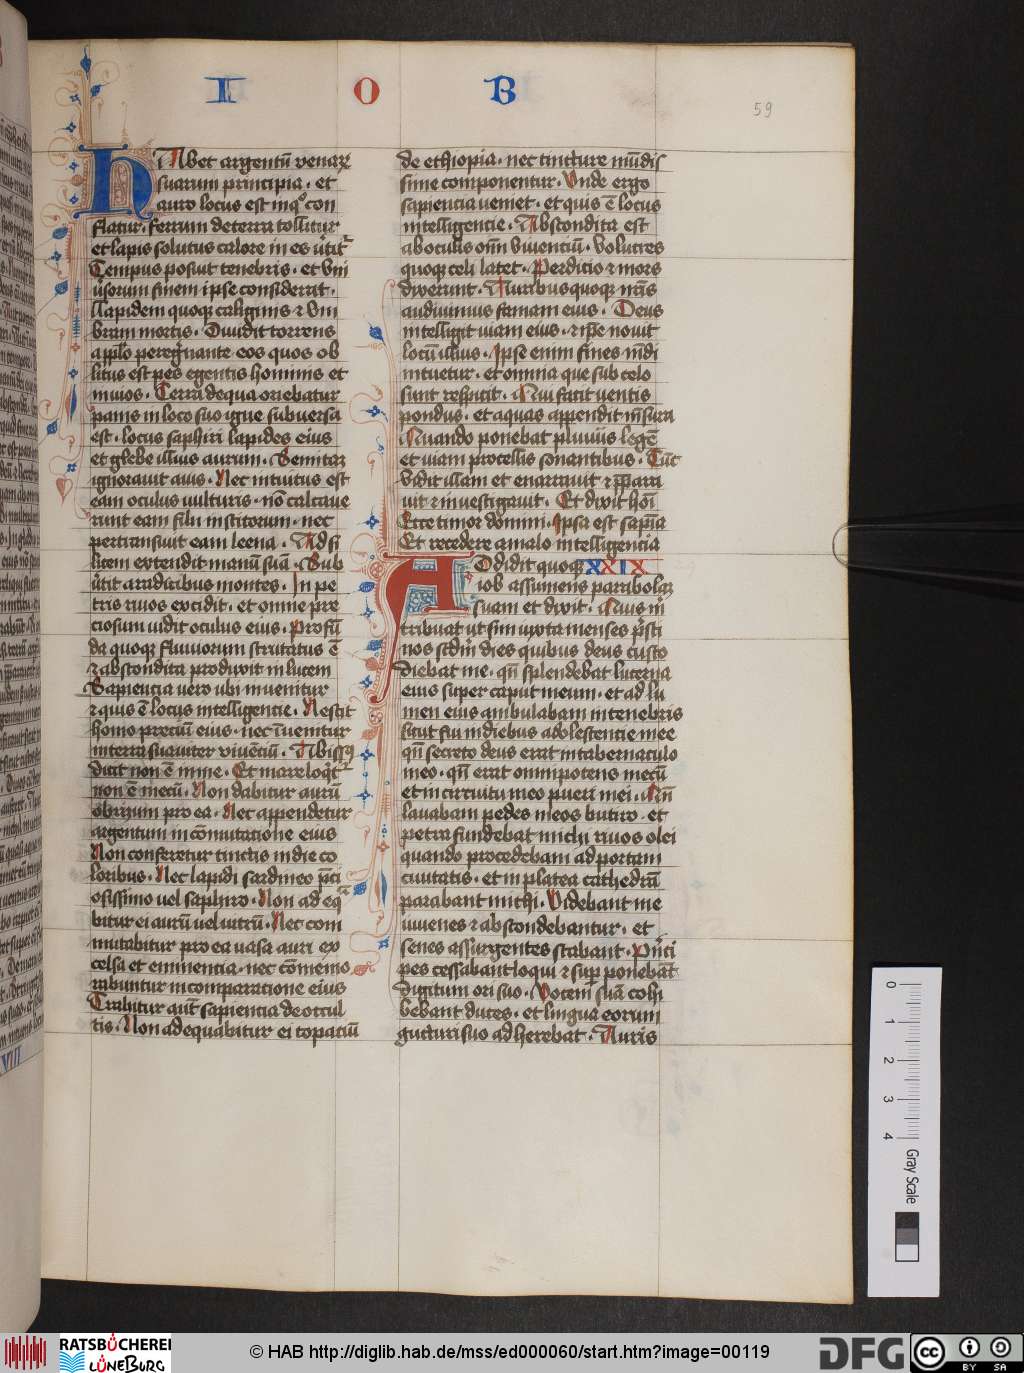 I O B
59
HAbet argentū venaꝝ
suarum principia · et
auro locus est in quo con
flatur · ferrum de terra tollitur
et lapis solutus calore in es v̄titʳ
Tempus posuit tenebris · et vni
v̄sorum finem ipse considerat ·
Lapidem quoqꝫ caliginis ⁊ vm
bram mortis · Diuidit torrens
a pplo peregrinante eos quos ob
litus est pes egentis hominis et
inuios · Terra de qua oriebatur
panis in loco suo igne subuersa
est · locus saphiri lapides eius
et glebe illius aurum · Semitaꝫ
ignorauit auis · Nec intuitus est
eam oculus vulturis · nō calcaue
runt eam filii institorum · nec
pertransiuit eam leena · Ad si
licem extendit manū suā · Sub
v̄tit a radicibus montes · In pe
tris riuos excidit · et omne pre
ciosum vidit oculus eius · Profū
da quoqꝫ fluuiorum scrutatus ē
⁊ abscondita produxit in lucem
Sapiencia uero vbi inuenitur
⁊ quis ē locus intelligentie · Nescit
homo precium eius · nec īuenitur
in terra suauiter viuēciū · Abissꝰ
dicit non ē in me · Et mare loqʳtʳ
non ē mecū · Non dabitur aurū
obrizum pro ea · Nec appendetur
argentum in cōmutatione eius
Non conferetur tinctis indie co
loribus · Nec lapidi sardineo p̄ci
osissimo uel saphiro · Non ad eq̄
bitur ei aurū uel vitrū · Nec com
mutabitur pro ea uasa auri ex
celsa et eminentia · nec cōmemo
rabuntur in comparatione eius
Trahitur aūt sapiencia de occul
tis · Non adequabitur ei topaciū
de ethiopia · nec tincture mūdis
sime componentur · Vnde ergo
sapiencia ueniet · et quis ē locus
intelligentie · Abscondita est
ab oculis oīm viuentiū · Volucres
quoqꝫ celi latet · Perdicio ⁊ mors
dixerunt · Auribus quoqꝫ nr̄is
audiuimus famam eius · Deus
intelligit uiam eius · ⁊ ip̄e nouit
locū illius · Ipse enim fines mūdi
intuetur · et omnia que sub celo
sunt respicit · Qui facit uentis
pondus · et aquas appendit m̄sura
Quando ponebat pluuiis legē
et uiam procellis sonantibus · Tūc
vidit illam et enarrauit ⁊ p̄para
uit ⁊ inuestigauit · Et dixit hoī
Ecce timor domini · Ipsa est sapīa
Et recedere a malo intelligencia
ADdidit quoqꝫ XXIX
iob assumens parabolaꝫ
suam et dixit · Quis m̄
tribuat ut sim iuxta menses p̄sti
nos scdm̄ dies quibus deus custo
diebat me · qn̄ splendebat lucerna
eius super caput meum · et ad lu
men eius ambulabam in tenebris
sicut fui in diebus adolescentie mee
qn̄ secreto deus erat in tabernaculo
meo · qn̄ erat omnipotens mecū
et in circuitu meo pueri mei · Qn̄
lauabam pedes meos butiro · et
petra fundebat michi riuos olei
quando procedebam ad portam
ciuitatis · et in platea cathedrā
parabant michi · Videbant me
iuuenes ⁊ abscondebantur · et
senes assurgentes stabant · P̄nci
pes cessabant loqui ⁊ suꝑ ponebāt
digitum ori suo · Vocem suā cohi
bebant duces · et lingua eorum
gutturi suo adherebat · Auris
VIII
0 1 2 3 4
Gray Scale
RATSBÜCHEREI LÜNEBURG
© HAB http://diglib.hab.de/mss/ed000060/start.htm?image=00119
DFG
cc BY SA